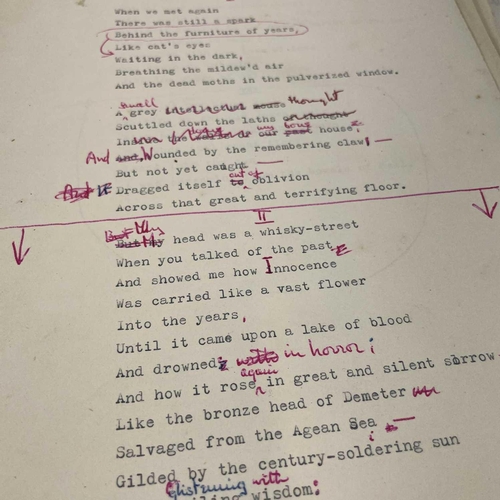 When we met again
There was still a spark
Behind the furniture of years,
Like cat's eyes
Waiting in the dark,
Breathing the mildew'd air
And the dead moths in the pulverized window.
small
A grey mouse thought
Scuttled down the laths of thought
In our past house,
And wounded by the remembering claw, —
But not yet caught —
out of
Dragged itself to oblivion
Across that great and terrifying floor.
II
But this
But my head was a whisky-street
When you talked of the past
And showed me how Innocence
Was carried like a vast flower
Into the years,
Until it came upon a lake of blood
And drowned in horror;
again
And how it rose in great and silent sorrow
Like the bronze head of Demeter
Salvaged from the Agean Sea —
Gilded by the century-soldering sun
Glistening with
wisdom: